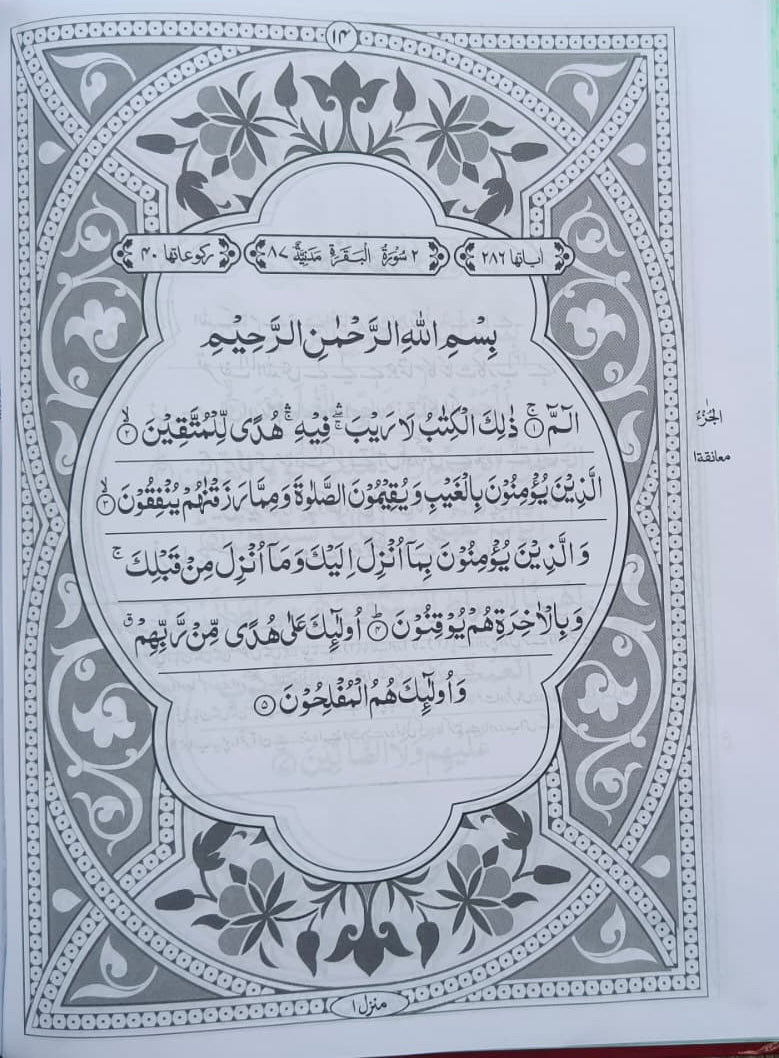 ۱۴
اٰیاتها ۲۸۶
۲ سُوْرَةُ الْبَقَرَةِ مَدَنِيَّةٌ ۸۷
رکوعاتها ۴۰
بِسْمِ اللّٰهِ الرَّحْمٰنِ الرَّحِيْمِ
الٓمّٓ ۚ‏﴿۱﴾ ذٰلِكَ الْكِتٰبُ لَا رَيْبَ ۛۚ فِيْهِ ۛۚ هُدًى لِّلْمُتَّقِيْنَ ۙ‏﴿۲﴾
الَّذِيْنَ يُؤْمِنُوْنَ بِالْغَيْبِ وَ يُقِيْمُوْنَ الصَّلٰوةَ وَ مِمَّا رَزَقْنٰهُمْ يُنْفِقُوْنَ ۙ‏﴿۳﴾
وَ الَّذِيْنَ يُؤْمِنُوْنَ بِمَاۤ اُنْزِلَ اِلَيْكَ وَ مَاۤ اُنْزِلَ مِنْ قَبْلِكَ ۚ
وَ بِالْاٰخِرَةِ هُمْ يُوْقِنُوْنَ ؕ‏﴿۴﴾ اُولٰٓئِكَ عَلٰى هُدًى مِّنْ رَّبِّهِمْ ۗ
وَ اُولٰٓئِكَ هُمُ الْمُفْلِحُوْنَ ﴿۵﴾
الجُزءُ
معانقة ۱
منزل ۱